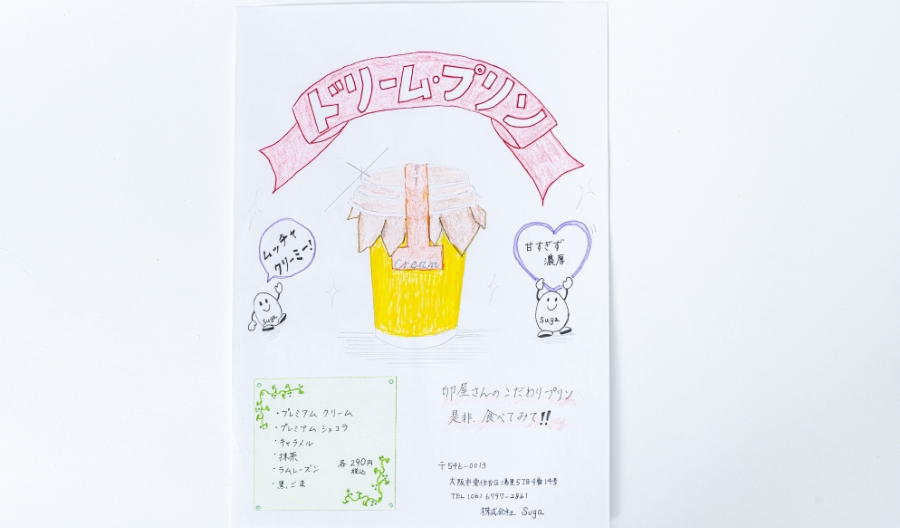 ドリーム・プリン
ムッチャ
クリーミー!
甘すぎず
濃厚
Cream
Suga
Suga
・プレミアム クリーム
・プレミアム ショコラ
・キャラメル
・抹茶
・ラムレーズン
・黒ごま
各290円
税込
卵屋さんのこだわりプリン
是非、食べてみて!!
〒546-0013
大阪市東住吉区湯里5丁目4番14号
TEL (06) 6797-2861
株式会社 Suga